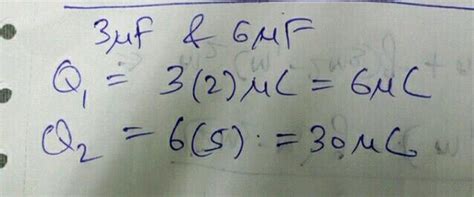 3μF & 6μF
Q₁ = 3(2)μC = 6μC
Q₂ = 6(5) = 30μC